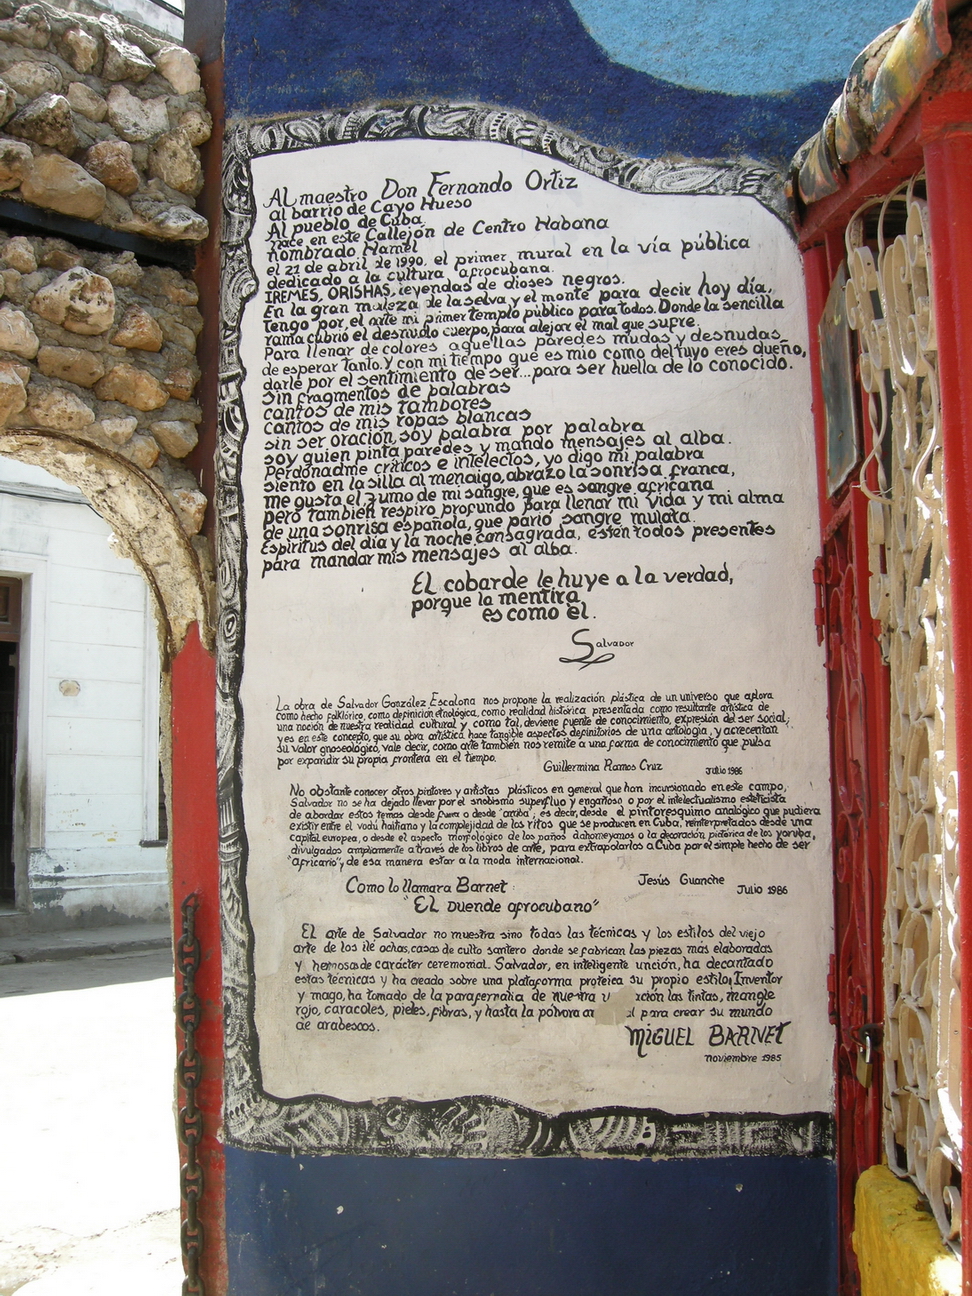 Al maestro Don Fernando Ortiz
al barrio de Cayo Hueso
Al pueblo de Cuba.
nace en este Callejón de Centro Habana
nombrado Hamel
el 21 de abril de 1990. el primer mural en la vía pública
dedicado a la cultura afrocubana.
IREMES, ORISHAS, leyendas de dioses negros.
En la gran maleza de la selva y el monte para decir hoy día,
tengo por, el arte mi primer templo público para todos. Donde la sencilla
rama cubrió el desnudo cuerpo, para alejar el mal que sufre.
Para llenar de colores aquellas paredes mudas y desnudas
de esperar tanto. y con mi tiempo que es mio como del tuyo eres dueño,
darle por el sentimiento de ser... para ser huella de lo conocido.
sin fragmentos de palabras
cantos de mis tambores
cantos de mis ropas blancas
sin ser oración, soy palabra por palabra
soy quien pinta paredes y mando mensajes al alba.
Perdonadme críticos e intelectos, yo digo mi palabra
siento en la silla al mendigo, abrazo la sonrisa franca,
me gusta el zumo de mi sangre, que es sangre africana
pero también respiro profundo para llenar mi vida y mi alma
de una sonrisa española, que parió sangre mulata.
Espíritus del día y la noche consagrada, estén todos presentes
para mandar mis mensajes al alba.
El cobarde le huye a la verdad,
porque la mentira
es como él.
Salvador
La obra de Salvador González Escalona nos propone la realización plástica de un universo que aflora
como hecho folklórico, como definición etnológica, como realidad histórica presentada como resultante artística de
una noción de nuestra realidad cultural y como tal, deviene fuente de conocimiento, expresión del ser social;
y es en este concepto, que su obra artística hace tangible aspectos definitorios de una antología, y acrecentan
su valor gnoseológico, vale decir, como arte también nos remite a una forma de conocimiento que pulsa
por expandir su propia frontera en el tiempo.
Guillermina Ramos Cruz Julio 1986
No obstante conocer otros pintores y artistas plásticos en general que han incursionado en este campo,
Salvador no se ha dejado llevar por el snobismo superfluo y engañoso o por el intelectualismo esteticista
de abordar estos temas desde fuera o desde "arriba", es decir, desde el pintoresquimo analógico que pudiera
existir entre el vodú haitiano y la complejidad de los ritos que se producen en Cuba, reinterpretados desde una
capital europea, o desde el aspecto morfológico de los paños dahomeyanos o la decoración pictórica de los yoruba,
divulgados ampliamente a través de los libros de arte, para extrapolarlos a Cuba por el simple hecho de ser
"africano", y de esa manera estar a la moda internacional.
Jesús Guanche Julio 1986
Como lo llamara Barnet
"EL Duende afrocubano"
El arte de Salvador no muestra sino todas las técnicas y los estilos del viejo
arte de los ilé ochas, casas de culto santero donde se fabrican las piezas más elaboradas
y hemosas de carácter ceremonial. Salvador, en inteligente unción, ha decantado
estas técnicas y ha creado sobre una plataforma proteica su propio estilo, Inventor
y mago, ha tomado de la parafernalia de nuestra las tintas, mangle
rojo, caracoles, pieles, fibras, y hasta la pólvora para crear su mundo
de arabescos.
MIGUEL BARNET
noviembre 1985